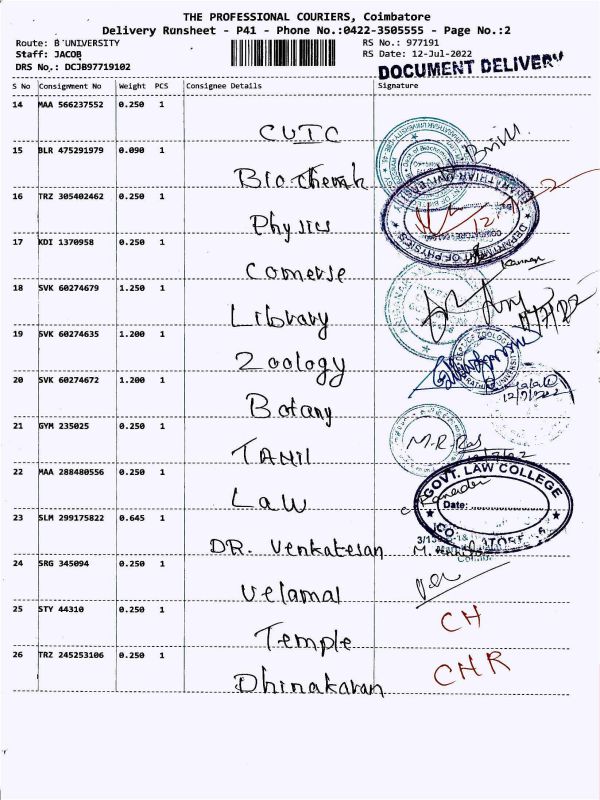 THE PROFESSIONAL COURIERS, Coimbatore
Delivery Runsheet - P41 - Phone No.:0422-3505555 - Page No.:2
Route: B UNIVERSITY
Staff: JACOB
DRS No.: DCJB97719102
RS No.: 977191
RS Date: 12-Jul-2022
DOCUMENT DELIVERY
S No Consignment No Weight PCS Consignee Details Signature
14 MAA 566237552 0.250 1
CUTC
15 BLR 475291979 0.090 1
Biochemis
16 TRZ 305402462 0.250 1
Physics
12-7-22
DEPARTMENT OF PHYSICS
17 KDI 1370958 0.250 1
Comerse
Kannan
18 SVK 60274679 1.250 1
Library
19 SVK 60274635 1.200 1
Zoology
20 SVK 60274672 1.200 1
Botany
21 GYM 235025 0.250 1
TAMIL
M.R. Ras
22 MAA 288480556 0.250 1
Law
GOVT. LAW COLLEGE
Date:
23 SLM 299175822 0.645 1
DR. Venkatesan
24 SRG 345094 0.250 1
Velamal
25 STY 44310 0.250 1
Temple
CH
26 TRZ 245253106 0.250 1
Dhinakaran
CHR